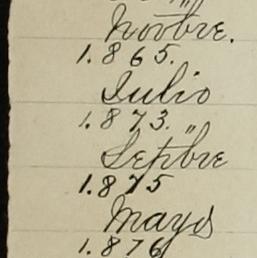 Novbre.
1.865.
Julio
1.873."
Sepbre
1.875
Mayo
1.876